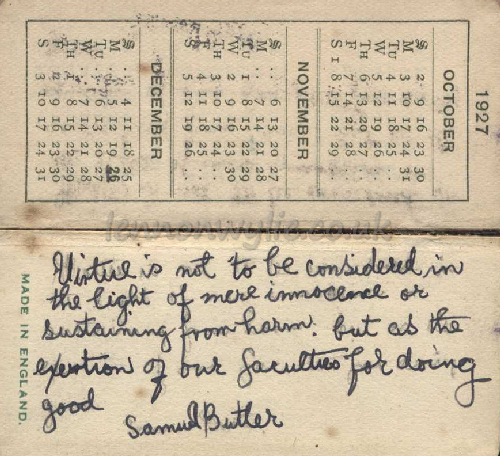 1927
OCTOBER
S . 2 9 16 23 30
M . 3 10 17 24 31
TU . 4 11 18 25 .
W . 5 12 19 26 .
TH . 6 13 20 27 .
F . 7 14 21 28 .
S 1 8 15 22 29 .
NOVEMBER
S . 6 13 20 27
M . 7 14 21 28
TU 1 8 15 22 29
W 2 9 16 23 30
TH 3 10 17 24 .
F 4 11 18 25 .
S 5 12 19 26 .
DECEMBER
S . 4 11 18 25
M . 5 12 19 26
TU . 6 13 20 27
W . 7 14 21 28
TH 1 8 15 22 29
F 2 9 16 23 30
S 3 10 17 24 31
lennonwylie.co.uk
Virtue is not to be considered in
the light of mere innocence or
sustaining from harm: but as the
exertion of our faculties for doing
good
Samuel Butler
MADE IN ENGLAND.